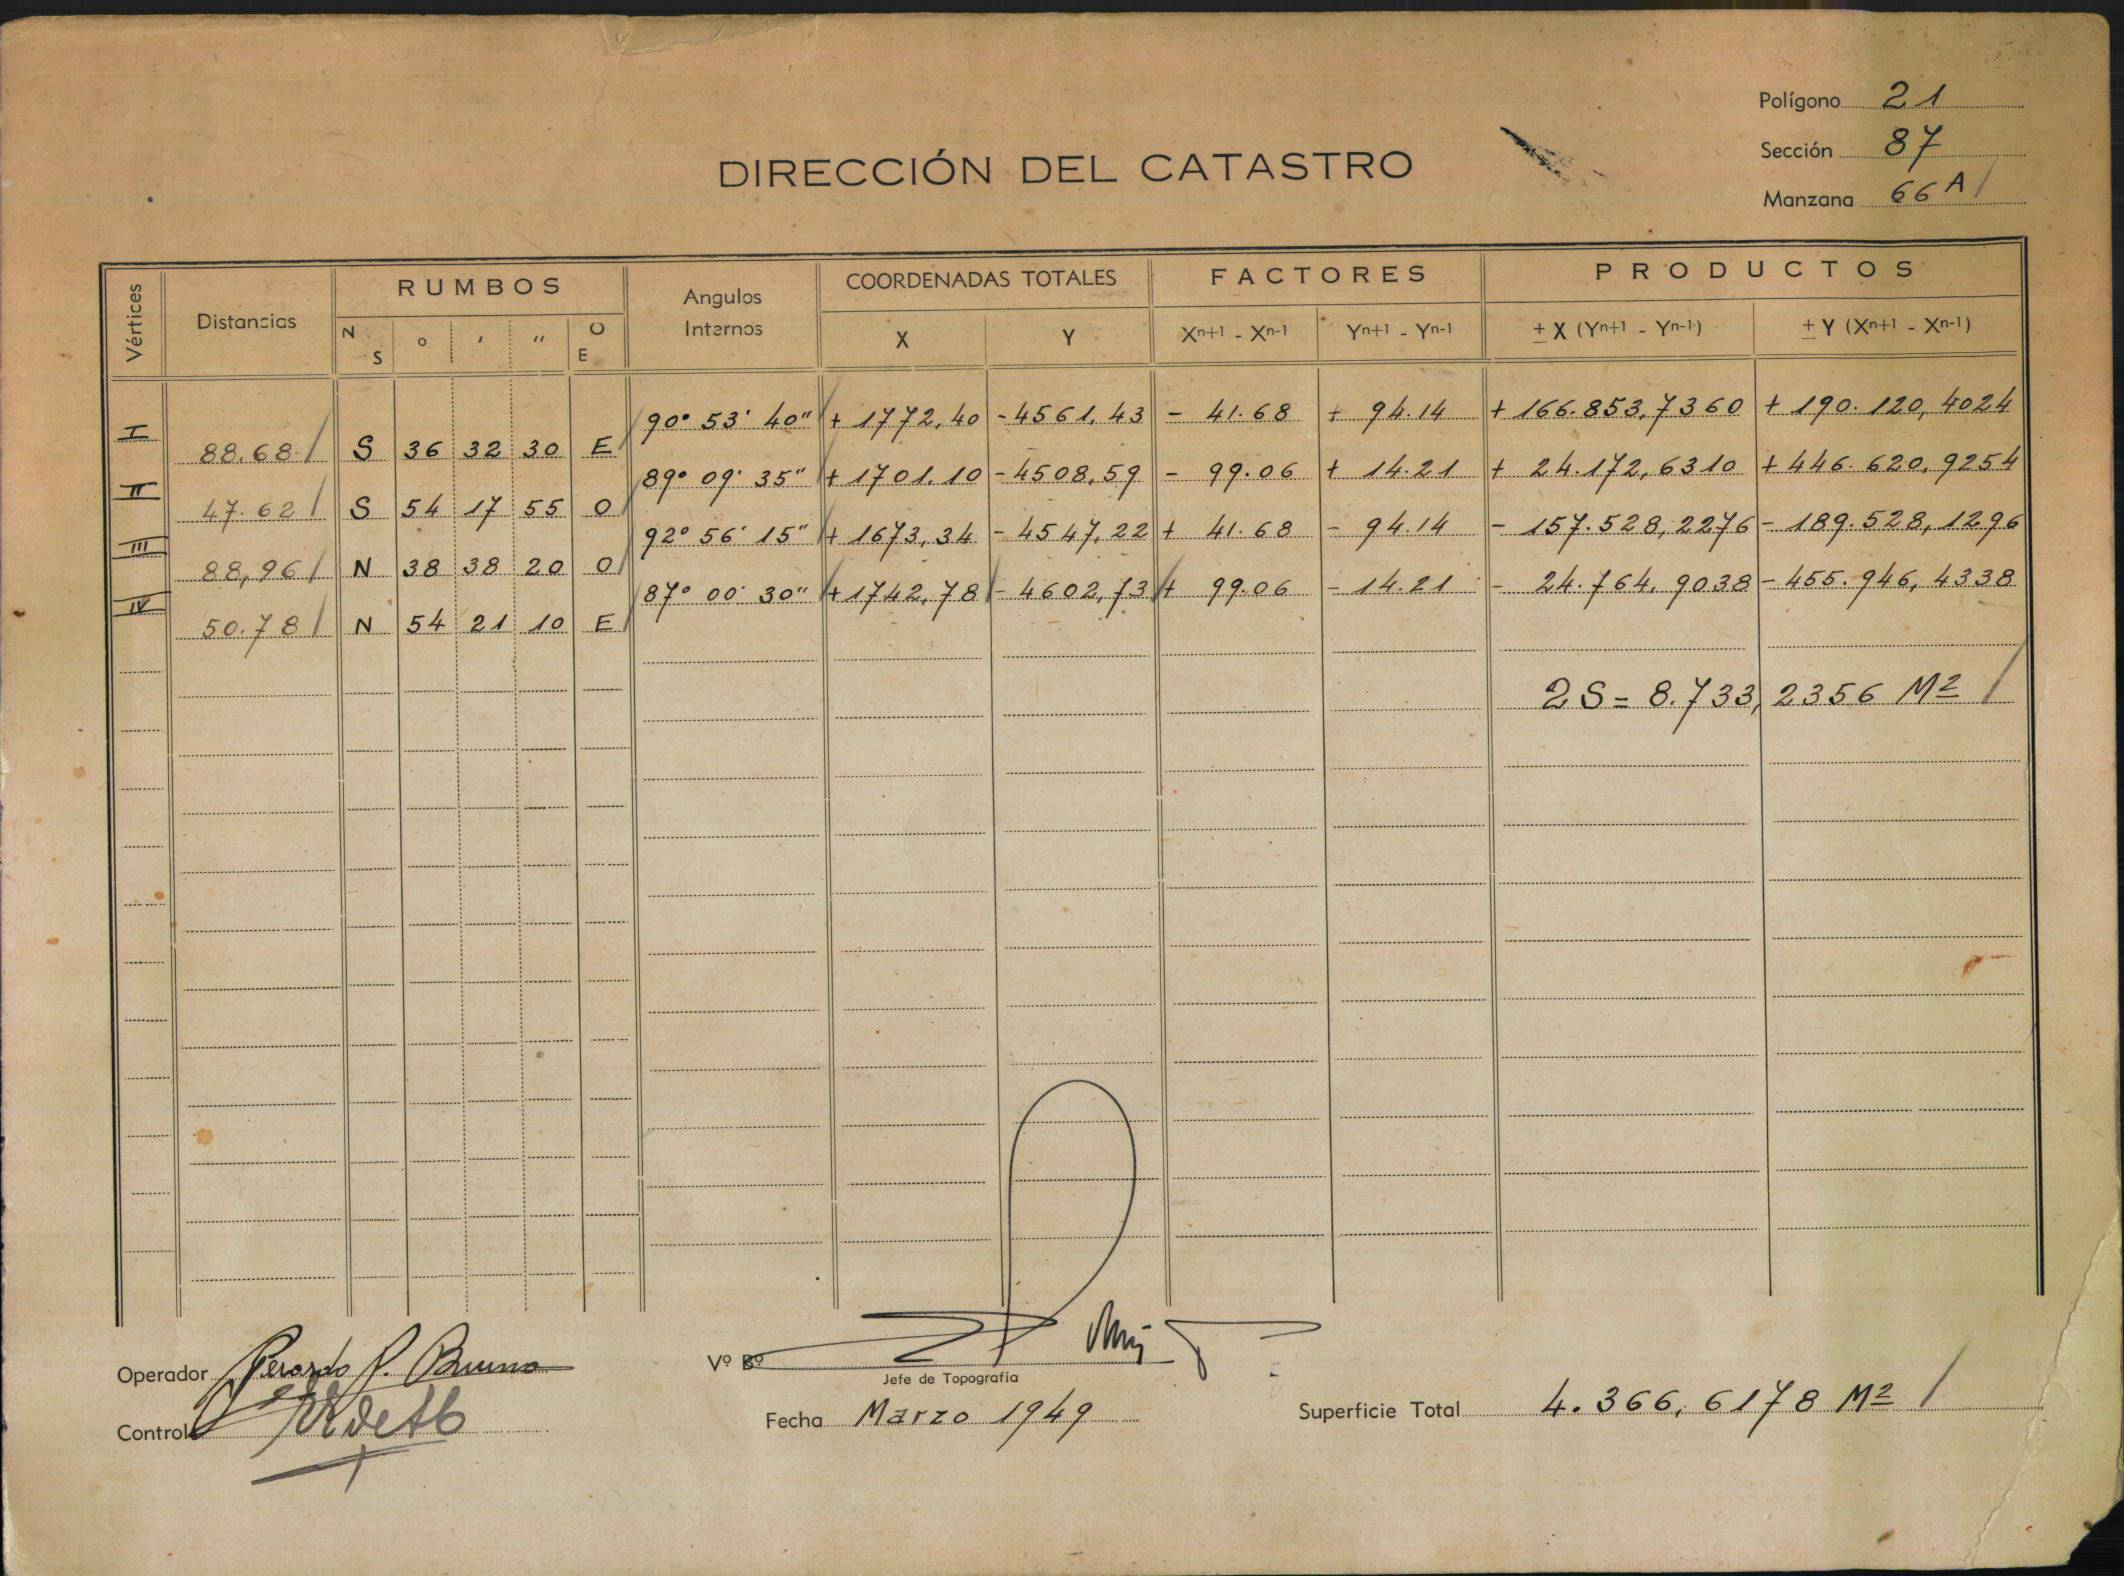 Polígono 21
Sección 87
Manzana 66 A
DIRECCIÓN DEL CATASTRO
Vértices Distancias RUMBOS Angulos Internos COORDENADAS TOTALES FACTORES PRODUCTOS
N S ° ′ ″ O E X Y Xn+1 - Xn-1 Yn+1 - Yn-1 ± X (Yn+1 - Yn-1) ± Y (Xn+1 - Xn-1)
I 90° 53' 40" + 1772,40 - 4561,43 - 41.68 + 94.14 + 166.853,7360 + 190.120,4024
88.68 S 36 32 30 E
II 89° 09' 35" + 1701.10 - 4508,59 - 99.06 + 14.21 + 24.172,6310 + 446.620,9254
47.62 S 54 17 55 O
III 92° 56' 15" + 1673,34 - 4547,22 + 41.68 - 94.14 - 157.528,2276 - 189.528,1296
88,96 N 38 38 20 O
IV 87° 00' 30" + 1742,78 - 4602,73 + 99.06 - 14.21 - 24.764,9038 - 455.946,4338
50.78 N 54 21 10 E
2S = 8.733,2356 M2
Operador Gerardo P. Bruno
Vº Bº
Jefe de Topografía
Control
Fecha Marzo 1949
Superficie Total 4.366,6178 M2